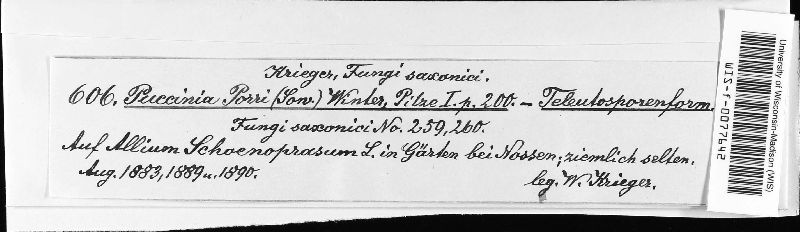 Krieger, Fungi saxonici.
606. Puccinia Porri (Sow.) Winter, Pilze I. p. 200. — Teleutosporenform.
Fungi saxonici No. 259, 260.
Auf Allium Schoenoprasum L. in Gärten bei Nossen; ziemlich selten.
Aug. 1883, 1889 u. 1890.
leg. W. Krieger.
University of Wisconsin-Madison (WIS)
WIS-f-0077642